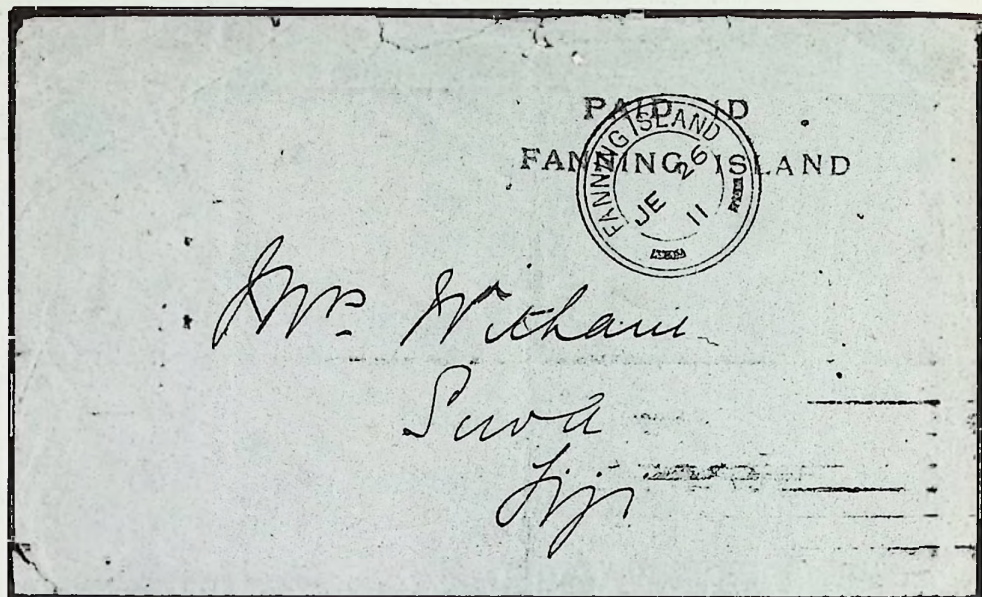 PAID 1D
FANNING ISLAND
FANNING ISLAND
JE 26
11
Mrs Witham
Suva
Fiji